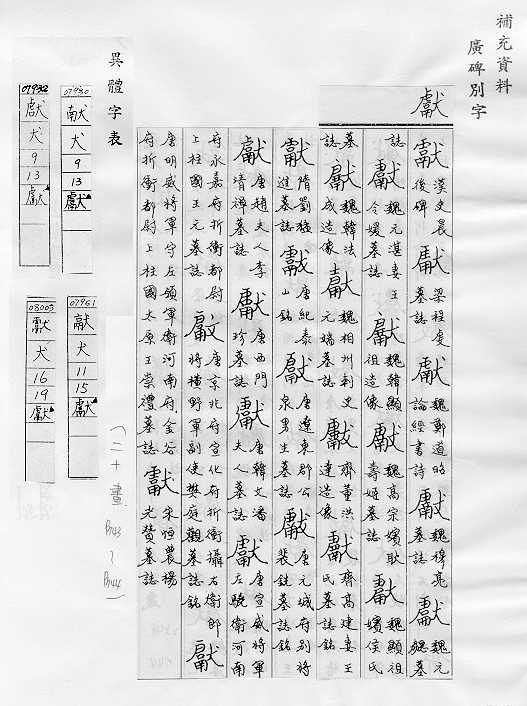 補充資料
廣碑別字
獻
獻 漢史晨後碑 獻 梁程虔 獻 魏鄭道昭論經書詩 獻 魏穆亮墓誌 獻 魏元勰墓
誌 獻 魏元湛妻王令媛墓誌 獻 魏韓顯祖造像 獻 魏高宗嬪耿壽姬墓誌 獻 魏顯祖嬪侯氏
墓誌 獻 魏韓法成造像 獻 魏相州刺史元端墓誌 獻 齊董洪達造像 獻 齊高建妻王氏墓誌銘
獻 隋劉猛進墓誌 獻 唐紀泰山銘 獻 唐遼東郡公泉男生墓誌 獻 唐元城府別將裴銑墓誌銘
獻 唐趙夫人李清禪墓誌 獻 唐西門珍墓誌 獻 唐韓文潘夫人墓誌 獻 唐宣威將軍左驍衛河南
府永嘉府折衝都尉上柱國王元墓誌 獻 唐京兆府宣化府折衝攝右衛郎將橫野軍副使樊庭觀墓誌銘 獻
唐明威將軍守左領軍衛河南府金谷府折衝都尉上柱國太原王崇禮墓誌 獻 宋恒農楊光贊墓誌
異體字表
(二十畫 P143~P144)
07930
献
犬
9
13
獻
07932
犬
9
13
獻
07961
犬
11
15
獻
08003
犬
16
19
獻